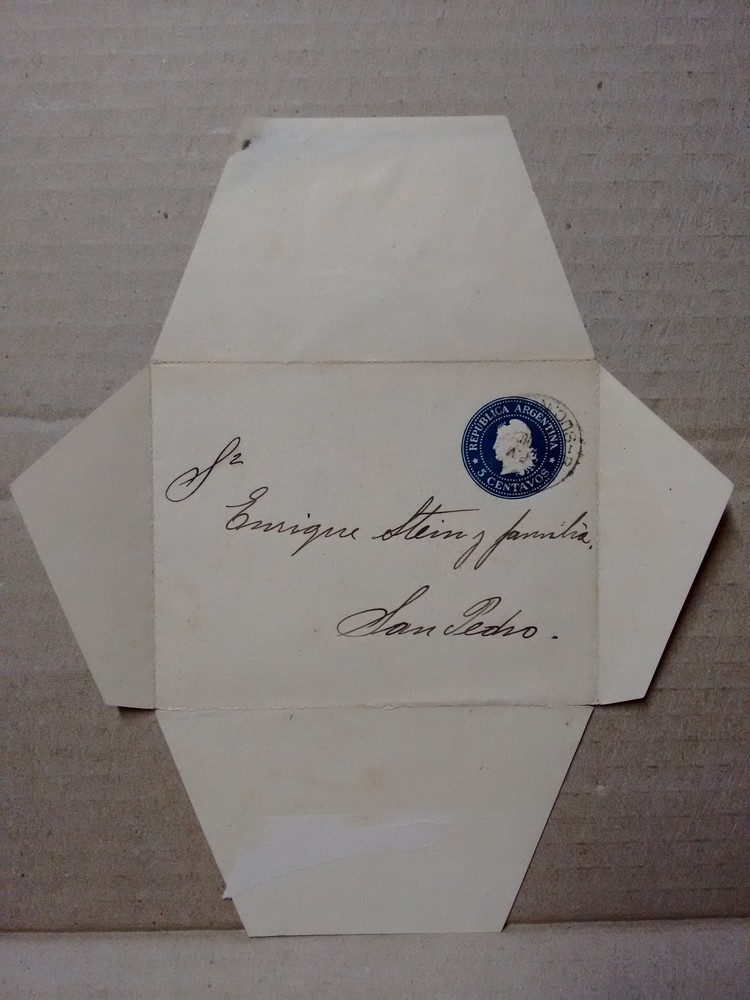 REPÚBLICA ARGENTINA
5 CENTAVOS
Sr
Enrique Stein y familia.
San Pedro.